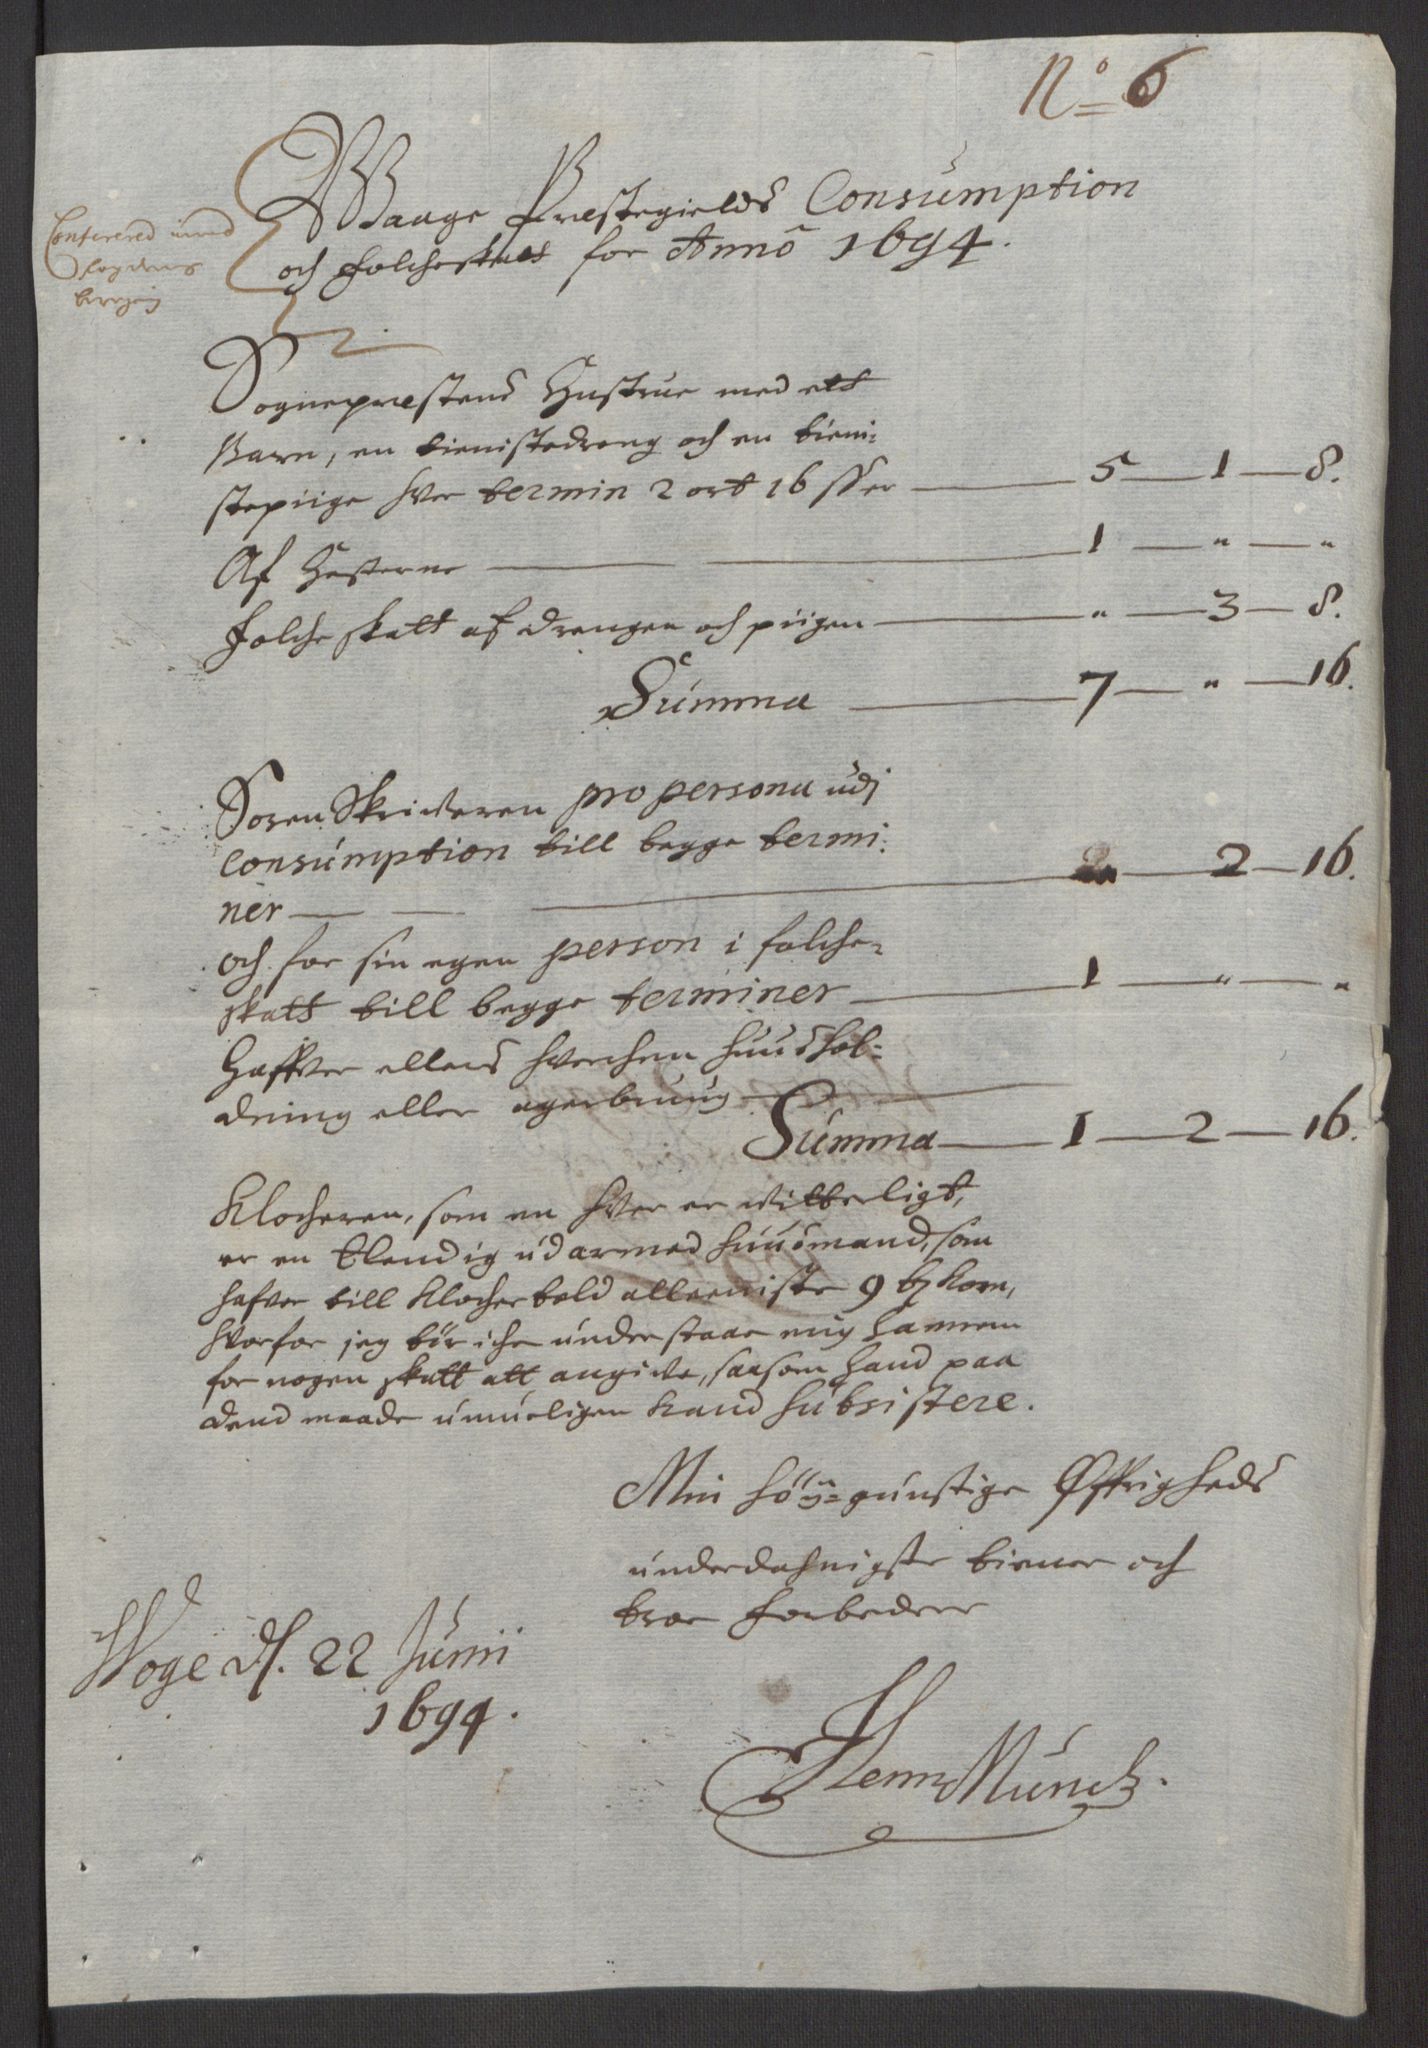 No 6
Waage Præstegields Consumption
och folcheskatt for Anno 1694.
Confereret imod
fogdens
bereg:
Sognepræstens Hustrue med ett
Barn, en tienistedreng och en tieni-
stepiige hver termin 2 ort 16 ss er 5 — 1 — 8.
Af Hesterne 1 — " — "
folche skatt af drengen och piigen " — 3 — 8.
Summa 7 — " — 16.
Soren Skriveren pro persona udj
Consumption till begge termi-
ner 2 — 16.
och for sin egen person i folche-
skatt till begge terminer 1 — " — "
Haffver ellers hverchen huushol-
dning eller agerbruug
Summa 1 — 2 — 16.
Klocheren, som en hver er vitterligt,
er en Elendig udarmed huusmand, som
hafver till Klocherbold alleeniste 9 bz Korn,
hvorfor jeg tør iche understaae mig hannem
for nogen skatt att angive, saasom hand paa
dend maade umueligen kand subsistere.
Min høy-gunstige Øffrigheds
underdahnigste tiener och
troe forbedere
Woge dl. 22 Junii
1694.
Henr Munch.